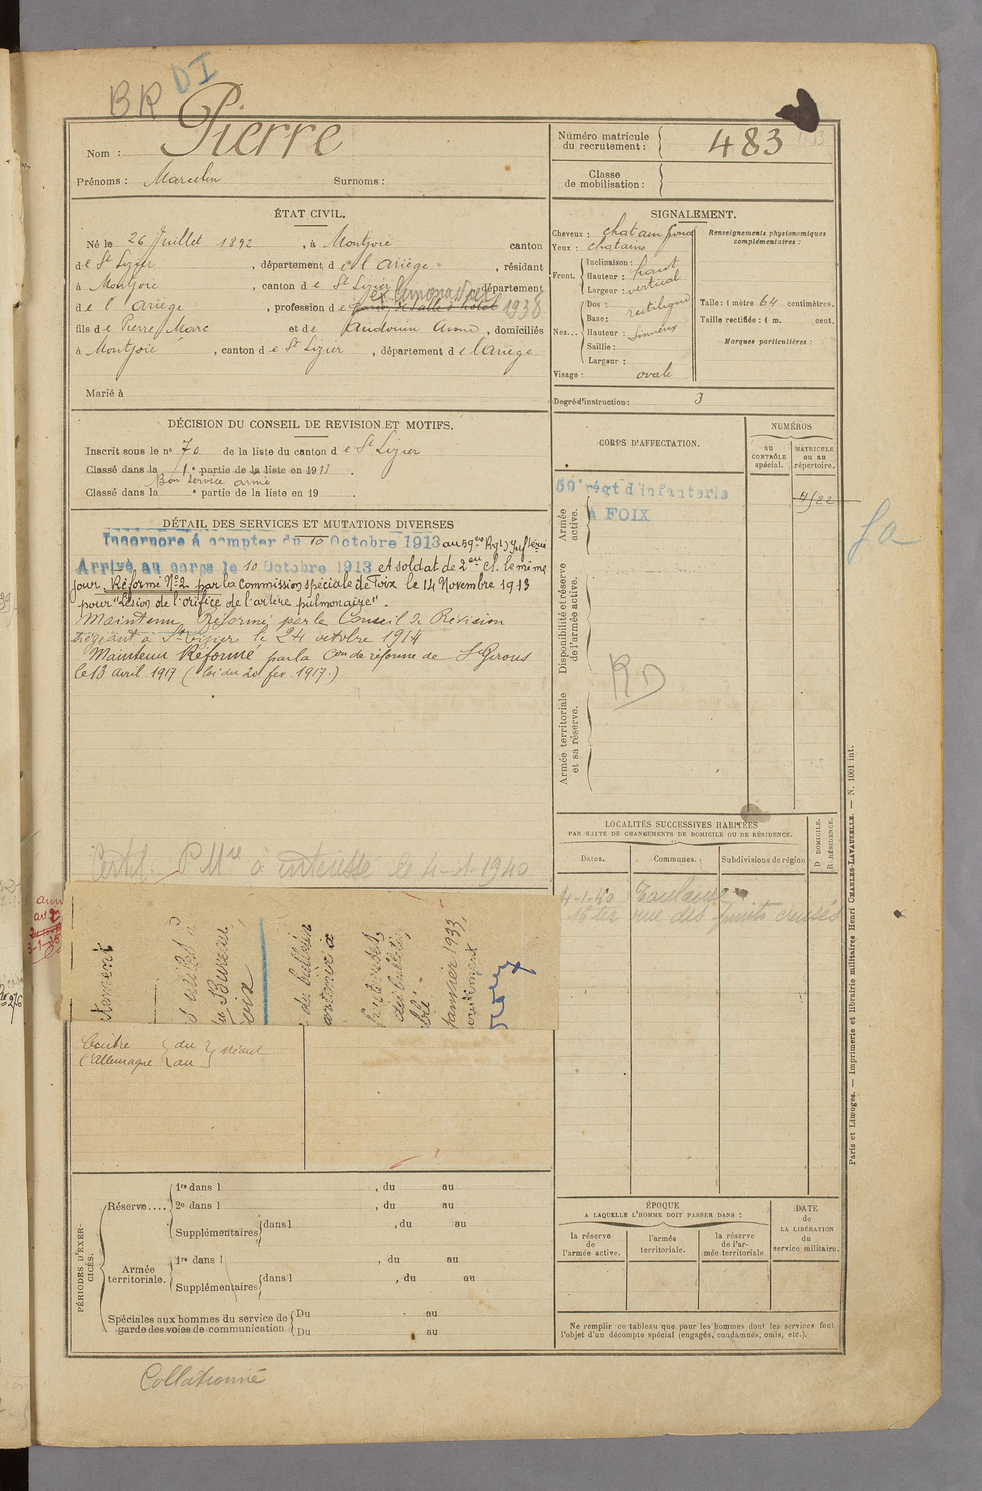 BR DI
Nom : Pierre
Prénoms : Marcelin Surnoms :
Numéro matricule du recrutement : 483
Classe de mobilisation :
ÉTAT CIVIL.
Né le 26 Juillet 1892, à Montjoie canton
de St Lizier, département de l'Ariège, résidant
à Montjoie, canton de St Lizier département
ex limonadier 1938
de l'Ariège, profession de garçon de salle d'hôtel
fils de Pierre Marc et de Audouin Anne, domiciliés
à Montjoie, canton de St Lizier, département de l'Ariège
Marié à
SIGNALEMENT.
Cheveux : chatain foncé
Yeux : chatains
Front. Inclinaison :
Hauteur : haut
Largeur : vertical
Nez... Dos : rectiligne
Base :
Hauteur :
Saillie :
Largeur :
Visage : ovale
Renseignements physionomiques complémentaires :
Taille : 1 mètre 64 centimètres.
Taille rectifiée : 1 m. cent.
Marques particulières :
Degré d'instruction : 3
DÉCISION DU CONSEIL DE REVISION ET MOTIFS.
Inscrit sous le n° 70 de la liste du canton de St Lizier
Classé dans la 1e partie de la liste en 1913.
Bon service armé
Classé dans la e partie de la liste en 19 .
DÉTAIL DES SERVICES ET MUTATIONS DIVERSES
Incorporé à compter du 10 Octobre 1913 au 59e Régt d'Infterie
Arrivé au corps le 10 Octobre 1913 et soldat de 2e cl. le même
jour. Réformé N°2 par la Commission spéciale de Foix le 14 Novembre 1913
pour "Lésion de l'orifice de l'artère pulmonaire".
Maintenu Réformé par le Conseil de Révision
siégeant à St Lizier le 24 octobre 1914
Maintenu Réformé par la Con de réforme de St Girons
le 13 avril 1917 (loi du 20 fev 1917.)
Certif. P Mre à intéressé le 4-1-1940
CORPS D'AFFECTATION.
NUMÉROS
au CONTRÔLE spécial.
MATRICULE ou au répertoire.
Armée active.
59e régt d'infanterie
à FOIX
4522
Disponibilité et réserve de l'armée active.
RD
Armée territoriale et sa réserve.
LOCALITÉS SUCCESSIVES HABITÉES
PAR SUITE DE CHANGEMENTS DE DOMICILE OU DE RÉSIDENCE.
Dates.
Communes.
Subdivisions de région
D DOMICILE.
R RÉSIDENCE.
4-1-40 Toulouse
16 ter rue des puits creusés
du Bureau
du bulletin
janvier 1933,
Contre l'Allemagne du au Néant
PÉRIODES D'EXERCICES.
Réserve.... 1re dans l , du au
2e dans l , du au
Supplémentaires dans l , du au
Armée territoriale. 1re dans l , du au
Supplémentaires dans l , du au
Spéciales aux hommes du service de garde des voies de communication Du au
Du au
ÉPOQUE
A LAQUELLE L'HOMME DOIT PASSER DANS :
la réserve de l'armée active.
l'armée territoriale.
la réserve de l'armée territoriale.
DATE de LA LIBÉRATION du service militaire.
Ne remplir ce tableau que pour les hommes dont les services font
l'objet d'un décompte spécial (engagés, condamnés, omis, etc.).
Paris et Limoges. — Imprimerie et librairie militaires Henri CHARLES-LAVAUZELLE. — N. 1001 int.
Collationné